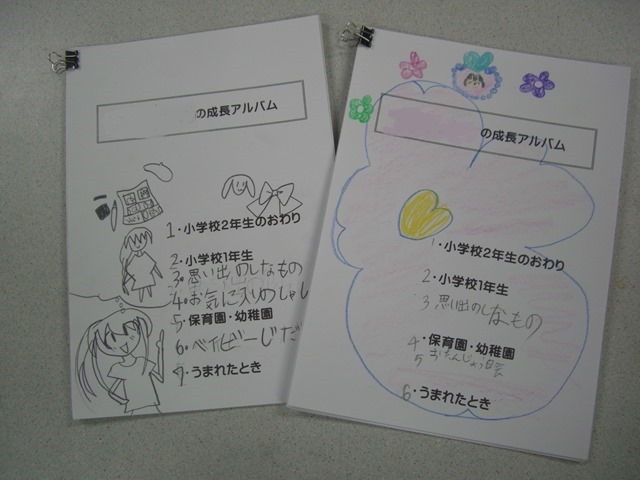 の成長アルバム
1・小学校2年生のおわり
2・小学校1年生
3・思い出のしなもの
4・お気に入りのしゃし
5・保育園・幼稚園
6・ベイビーじだ
7・うまれたとき
の成長アルバム
1・小学校2年生のおわり
2・小学校1年生
3 思い出のしなもの
4・保育園・幼稚園
5 おたんじょう日会
6・うまれたとき